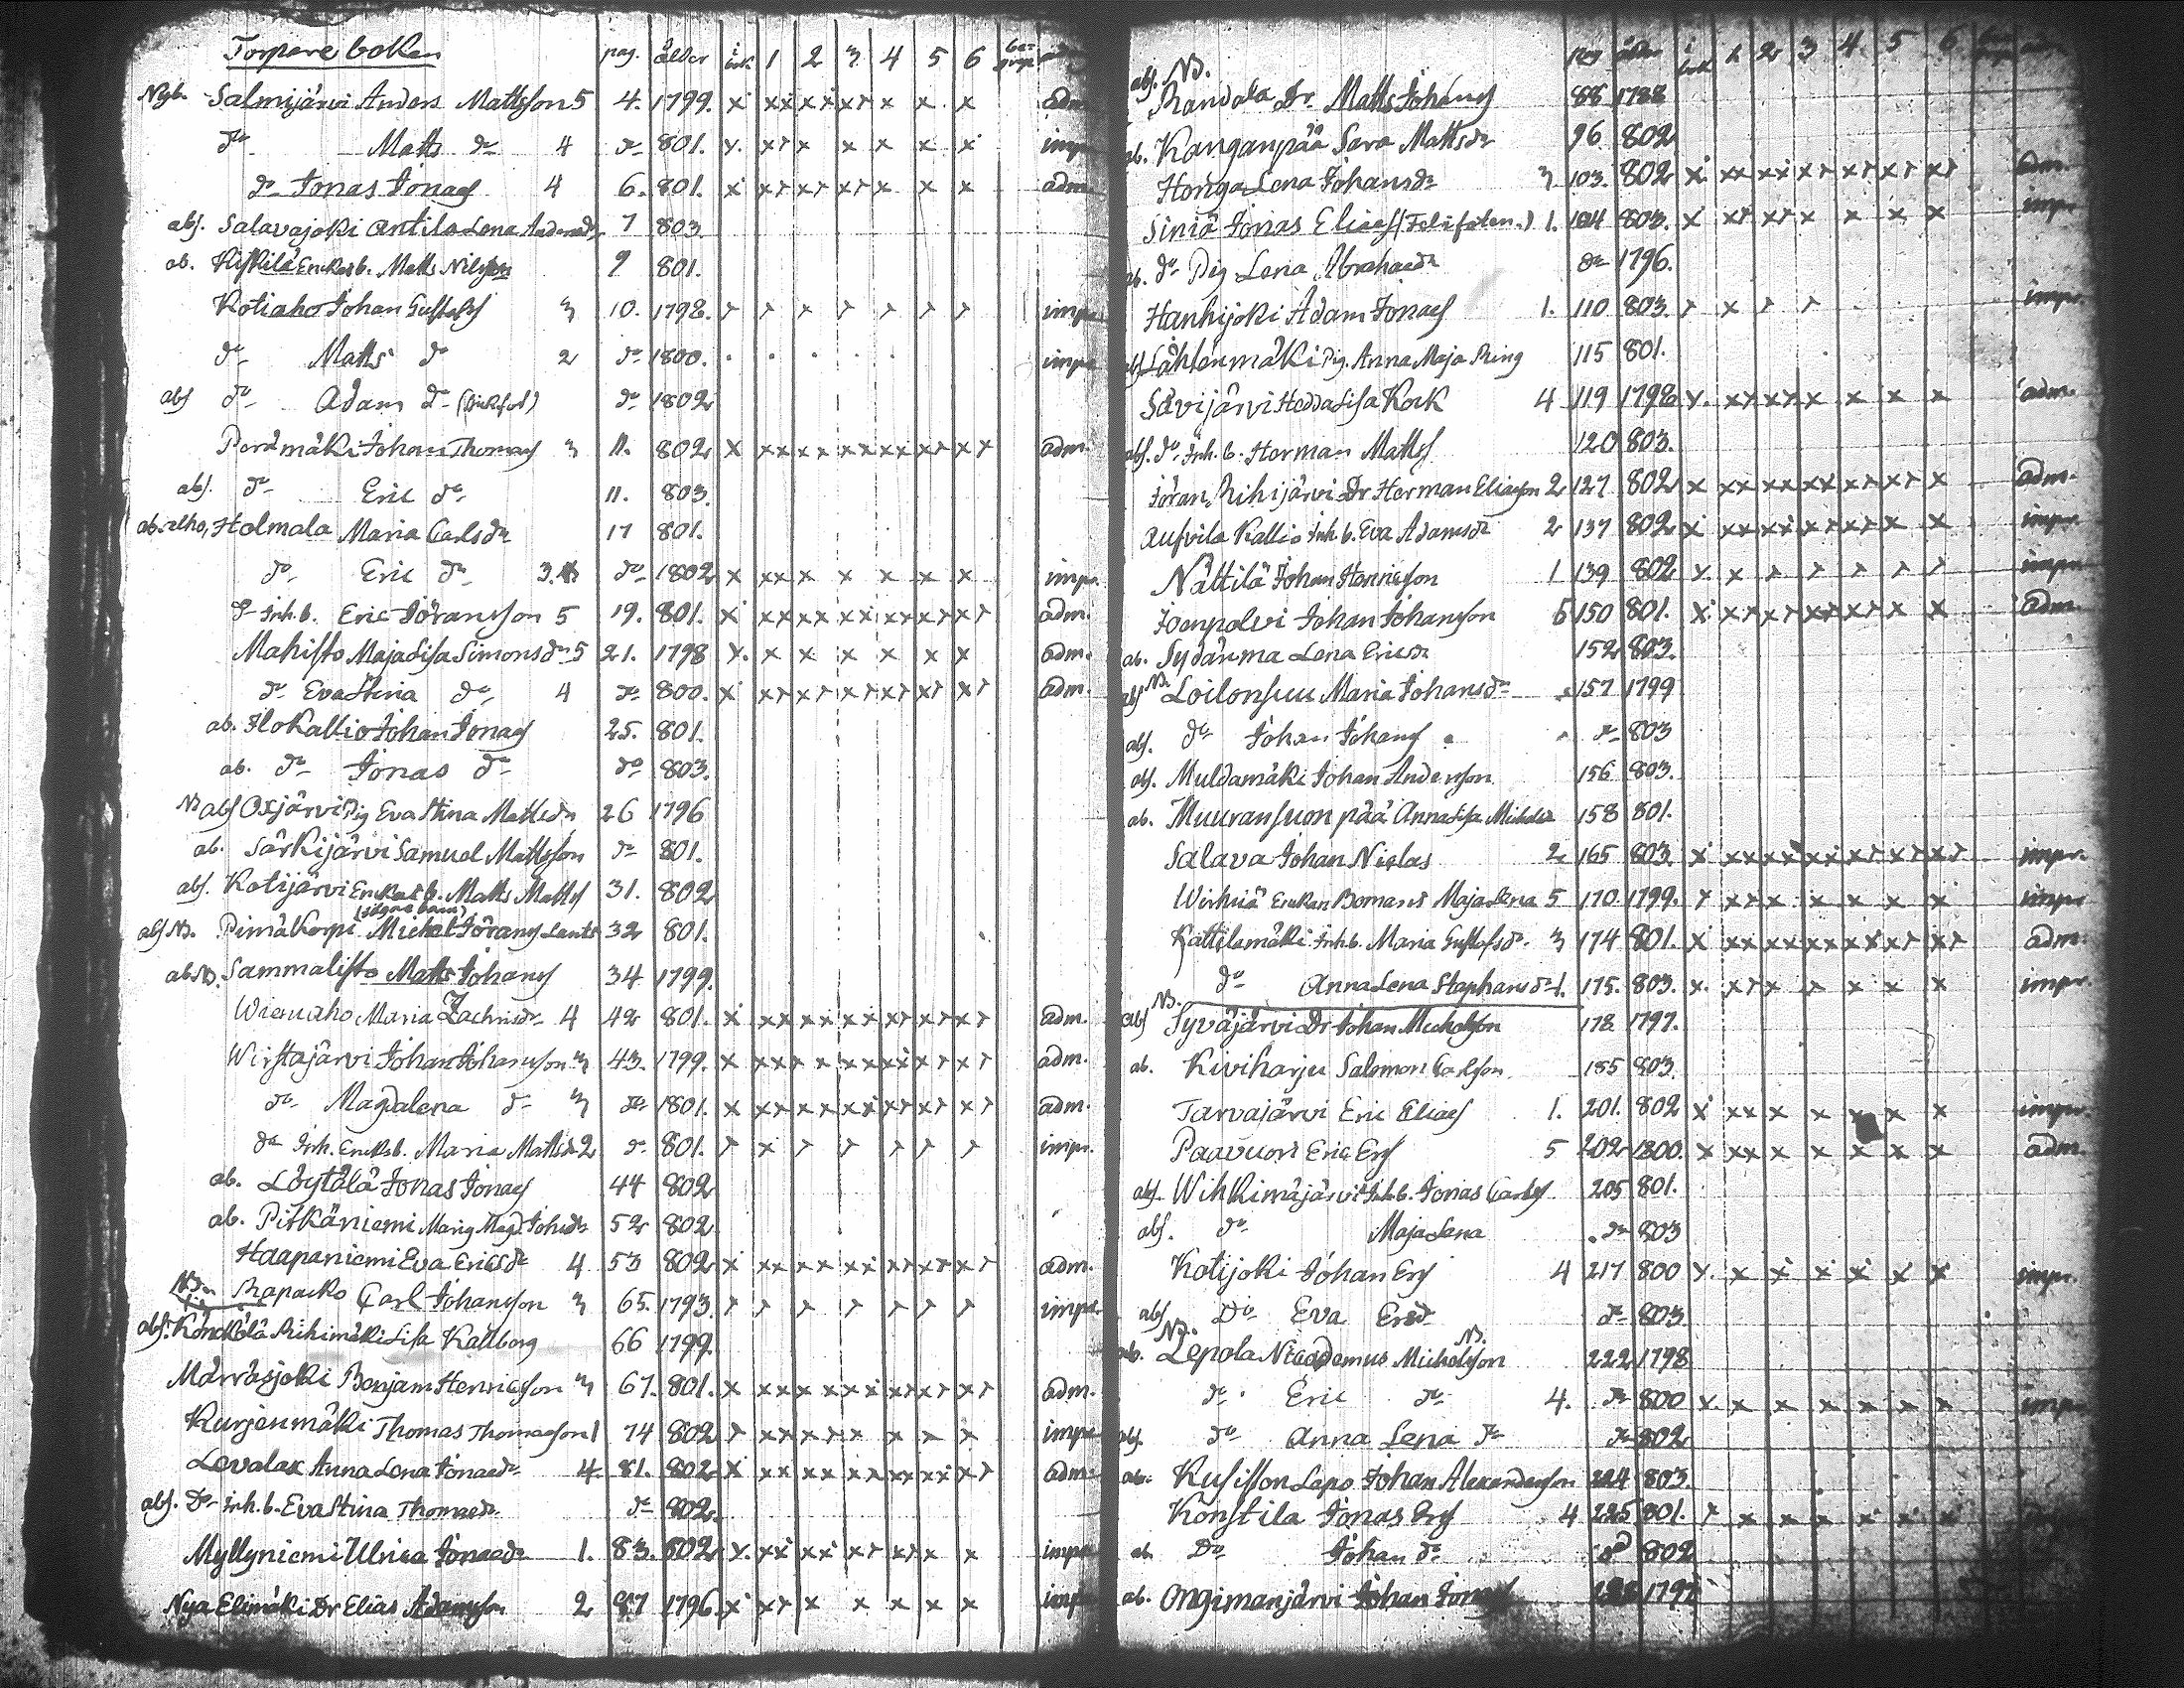 Torpare boken pag. ålder i bok. 1 2 3 4 5 6
Nyb. Salmijärvi Anders Mattsson 5 4. 1799. x xx xx xx x x x adm.
do Matts do 4 do 801. x. xx x x x x x imp.
do Jonas Jonass 4 6. 801. x xx xx xx x x x adm.
abs. Salavajoki Antila Lena Andersdr 7 803.
ab. Kiskilä Enkas b. Matts Nilsson 9 801.
Kotiaho Johan Gustafss 3 10. 1798. impr.
do Matts do 2 do 1800. impr.
abs do Adam do do 1802
Perämäki Johan Thomass 3 11. 802 x xx xx xx xx xx xx adm.
abs. do Eric do 11. 803.
ab. Holmala Maria Carlsdr 17 801.
do Eric do 3. do 1802 x xx x x x x x impr.
do Inh. b. Eric Jöransson 5 19. 801. x xx xx xx xx xx xx adm.
Mahisto Maja Lisa Simonsdr 5 21. 1798 x. x x x x x x adm.
do Eva Stina do 4 do 800. x xx xx xx xx xx xx adm.
ab. Ilokallio Johan Jonass 25. 801.
ab. do Jonas do do 803.
NB abs Oxjärvi Pig Eva Stina Mattsdr 26 1796
ab. Särkijärvi Samuel Mattsson do 801.
abs. Kotijärvi Enkas b. Matts Mattss 31. 802
abs NB. Pimäkorpi Michel Jöranss 32 801.
abs NB. Sammalisto Matts Johanss 34 1799.
Wiemaho Maria Zachrisdr 4 42 801. x xx xx xx xx xx xx adm.
Wirstajärvi Johan Johansson 3 43. 1799. x xx x x xx xx xx xx adm.
do Magdalena do 3 do 1801. x xx xx xx xx xx xx adm.
do Inh. Enkas b. Maria Mattsdr 2 do 801. impr.
ab. Löytälä Jonas Jonass 44 802
ab. Pitkäniemi Maria Magd. Johsdr 52 802
Haapaniemi Eva Ericsdr 4 53 802 x xx xx xx xx xx xx adm.
NB. Rapacko Carl Johansson 3 65. 1793. impr.
abs. Könckölä Riihimäki Lisa Kallborg 66 1799.
Märräsjoki Benjam Henricsson 3 67. 801. x xx xx xx xx xx xx adm.
Kurjenmäki Thomas Thomasson 1 74 802 x xx xx x x x impr.
Levalax Anna Lena Jonaedr 4 81. 802 x xx xx xx xx xx xx adm.
abs. Do Inh. b. Eva Stina Thomaedr do 802.
Myllyniemi Ulrica Jonaedr 1. 83. 802 x. xx xx xx xx x x impr.
Nya Elimäki Dr Elias Adamsson 2 87 1796. x xx x x x x x impr.
pag ålder i bok 1 2 3 4 5 6
abs. NB. Randala Dr Matts Johanss 88 1788
ab. Kanganpää Sara Mattsdr 96 802
Honga Lena Johansdr 3 103. 802 x xx xx xx xx xx xx adm.
Siniä Jonas Eliaess 1. 104 803. x xx xx x x x x impr.
ab. do Pig Lena Abrahaedr do 1796.
Hanhijoki Adam Jonass 1. 110 803. impr.
abs Lähtenmäki Pig. Anna Maja Ring 115 801.
Savijärvi Hedda Lisa Kock 4 119 1798 x. xx xx x x x x adm.
abs. do Inh. b. Herman Mattss 120 803.
Jöran Riihijärvi Dr Herman Eliasson 2 127 802 x xx xx xx xx xx x adm.
Aufvila Kallio Inh b. Eva Adamsdr 2 137 802 x xx xx xx xx x x impr.
Nättilä Johan Henricsson 1 139 802 impr.
Joenpolvi Johan Johansson 5 150 801. x xx xx xx xx x x adm.
ab. Sydänmaa Lena Ericsdr 152 803.
abs NB. Loilonsuu Maria Johansdr 157 1799
abs. do Johan Johanss do 803
abs. Muldamäki Johan Andersson 156 803.
ab. Muuransuonpää Anna Lisa Michelsdr 158 801.
Salava Johan Niclas 2 165 803. x xx xx xx xx xx xx impr.
Wirkiä Enkan Bomans Maja Lena 5 170. 1799. impr.
Kattilamäki Inh. b. Maria Gustafsdr 3 174 801. x xx xx xx xx xx xx adm.
do Anna Lena Staphansdr 1. 175. 803. impr.
abs NB. Syväjärvi Dr Johan Michelsson 178 1797.
ab. Kiviharju Salomon Carlsson 185 803.
Tarvajärvi Eric Eliass 1. 201. 802 x xx x x x x x impr.
Paavuori Eric Erss 5 202 1800. x xx x x x x x adm.
abs. Wihkimäjärvi Inh. b. Jonas Carlss 205 801.
abs. do Maja Lena do 803
Kotijoki Johan Erss 4 217 800 x. x x x x x x impr.
abs Do Eva Ersdr do 803.
ab. NB. Lepola Nicodemus Michelsson NB. 222 1798
do Eric do 4. do 800 x. x x x x x x impr.
abs. do Anna Lena do do 802
ab. Kusisson Lapo Johan Alexandersson 224 803.
Konstila Jonas Erss 4 225 801. x x x x x x
ab. Do Johan do do 802
ab. Ongimanjärvi Johan 1797